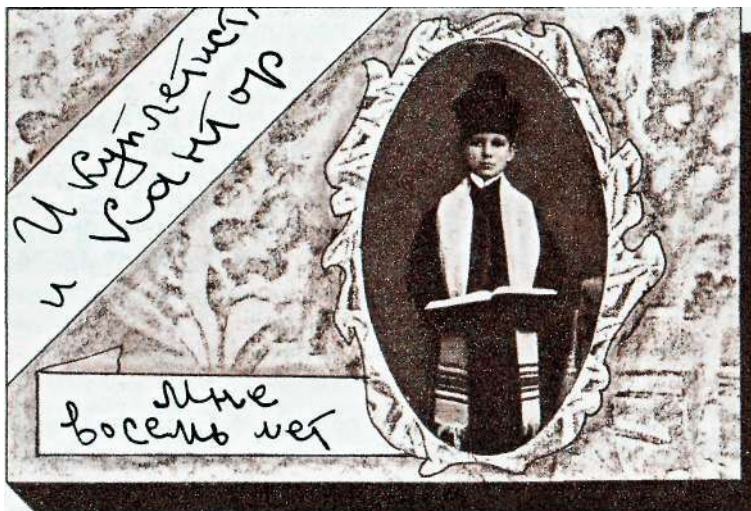 И куплетист,
и кантор
Мне
восемь лет